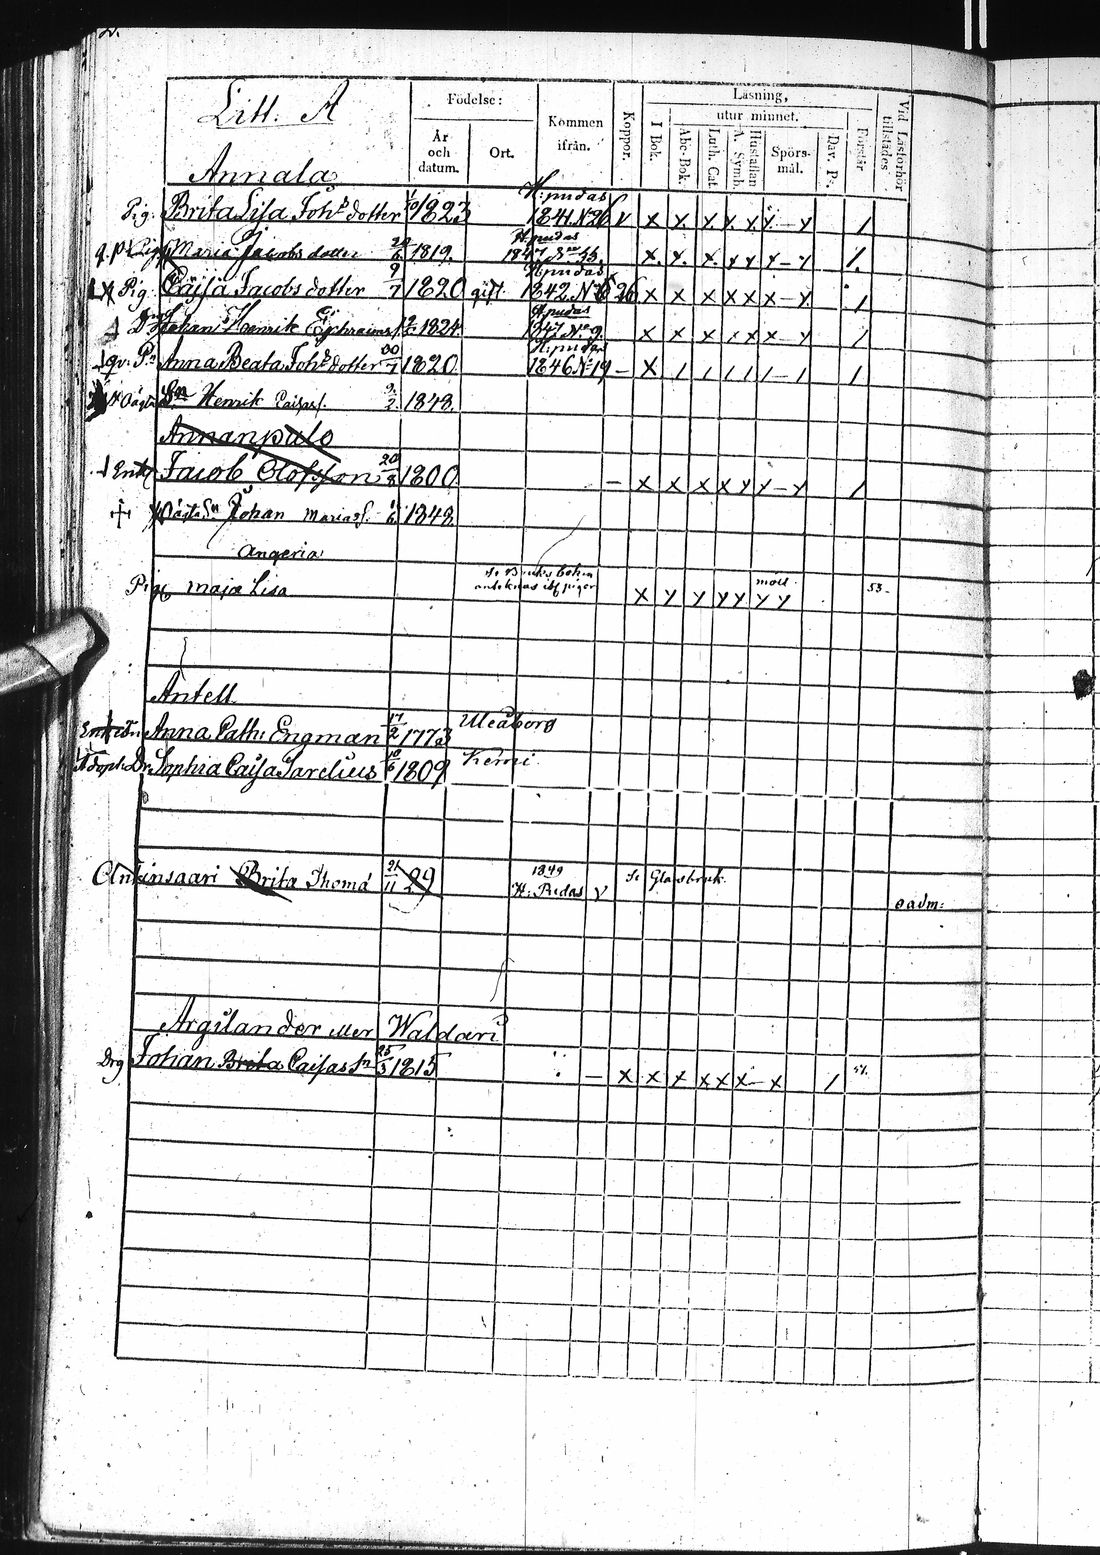 2.
Litt. A
Födelse:
År och datum.
Ort.
Kommen ifrån.
Koppor.
Läsning,
utur minnet.
I Bok.
Abc-Bok.
Luth. Cat.
A. Symb.
Hustaflan
Spörs-mål.
Dav. Ps.
Förstår
Vid Läsförhör tillstädes
Annala
Pig. Brita Lisa Joh:s dotter 1/10 1823 H:pudas 1841. N:26 v x x x x x x - x /
Maria Jacobs dotter 1819. H:pudas 1847 55. x x x x x x - x /
Pig. Caisa Jacobs dotter 9/7 1820 gift. H:pudas 1842. N: 26 x x x x x x - x /
Johan Henrik Ephraims s. 1824 H:pudas 1847 N:o 9 x x x x x x - x /
Anna Beata Joh:s dotter 30/7 1820 H:pudas 1846 N:19 - x / / / / / - / /
Sn Henrik Caisas s. 9/2 1848.
Annanpalo
Enkl Jacob Olofsson 20/8 1800 - x x x x x x - x /
Oägta Sn Johan Marias s. 1/6 1848
Angeria
Pig Maja Lisa x x x x x x x 53-
Antell
Enkefru Anna Cath: Engman 17/2 1773 Uleåborg
Adopt: Dr Sophia Caisa Sarelius 10/6 1809 Kemi
Antinsaari Brita Thomæ 21/11 29 1849 H: Pudas v se Glasbruk.
admi:
Argilander eller Waldari
Drg Johan Brita Caisas Sn 25/3 1815 - x x x x x x - x / 51.